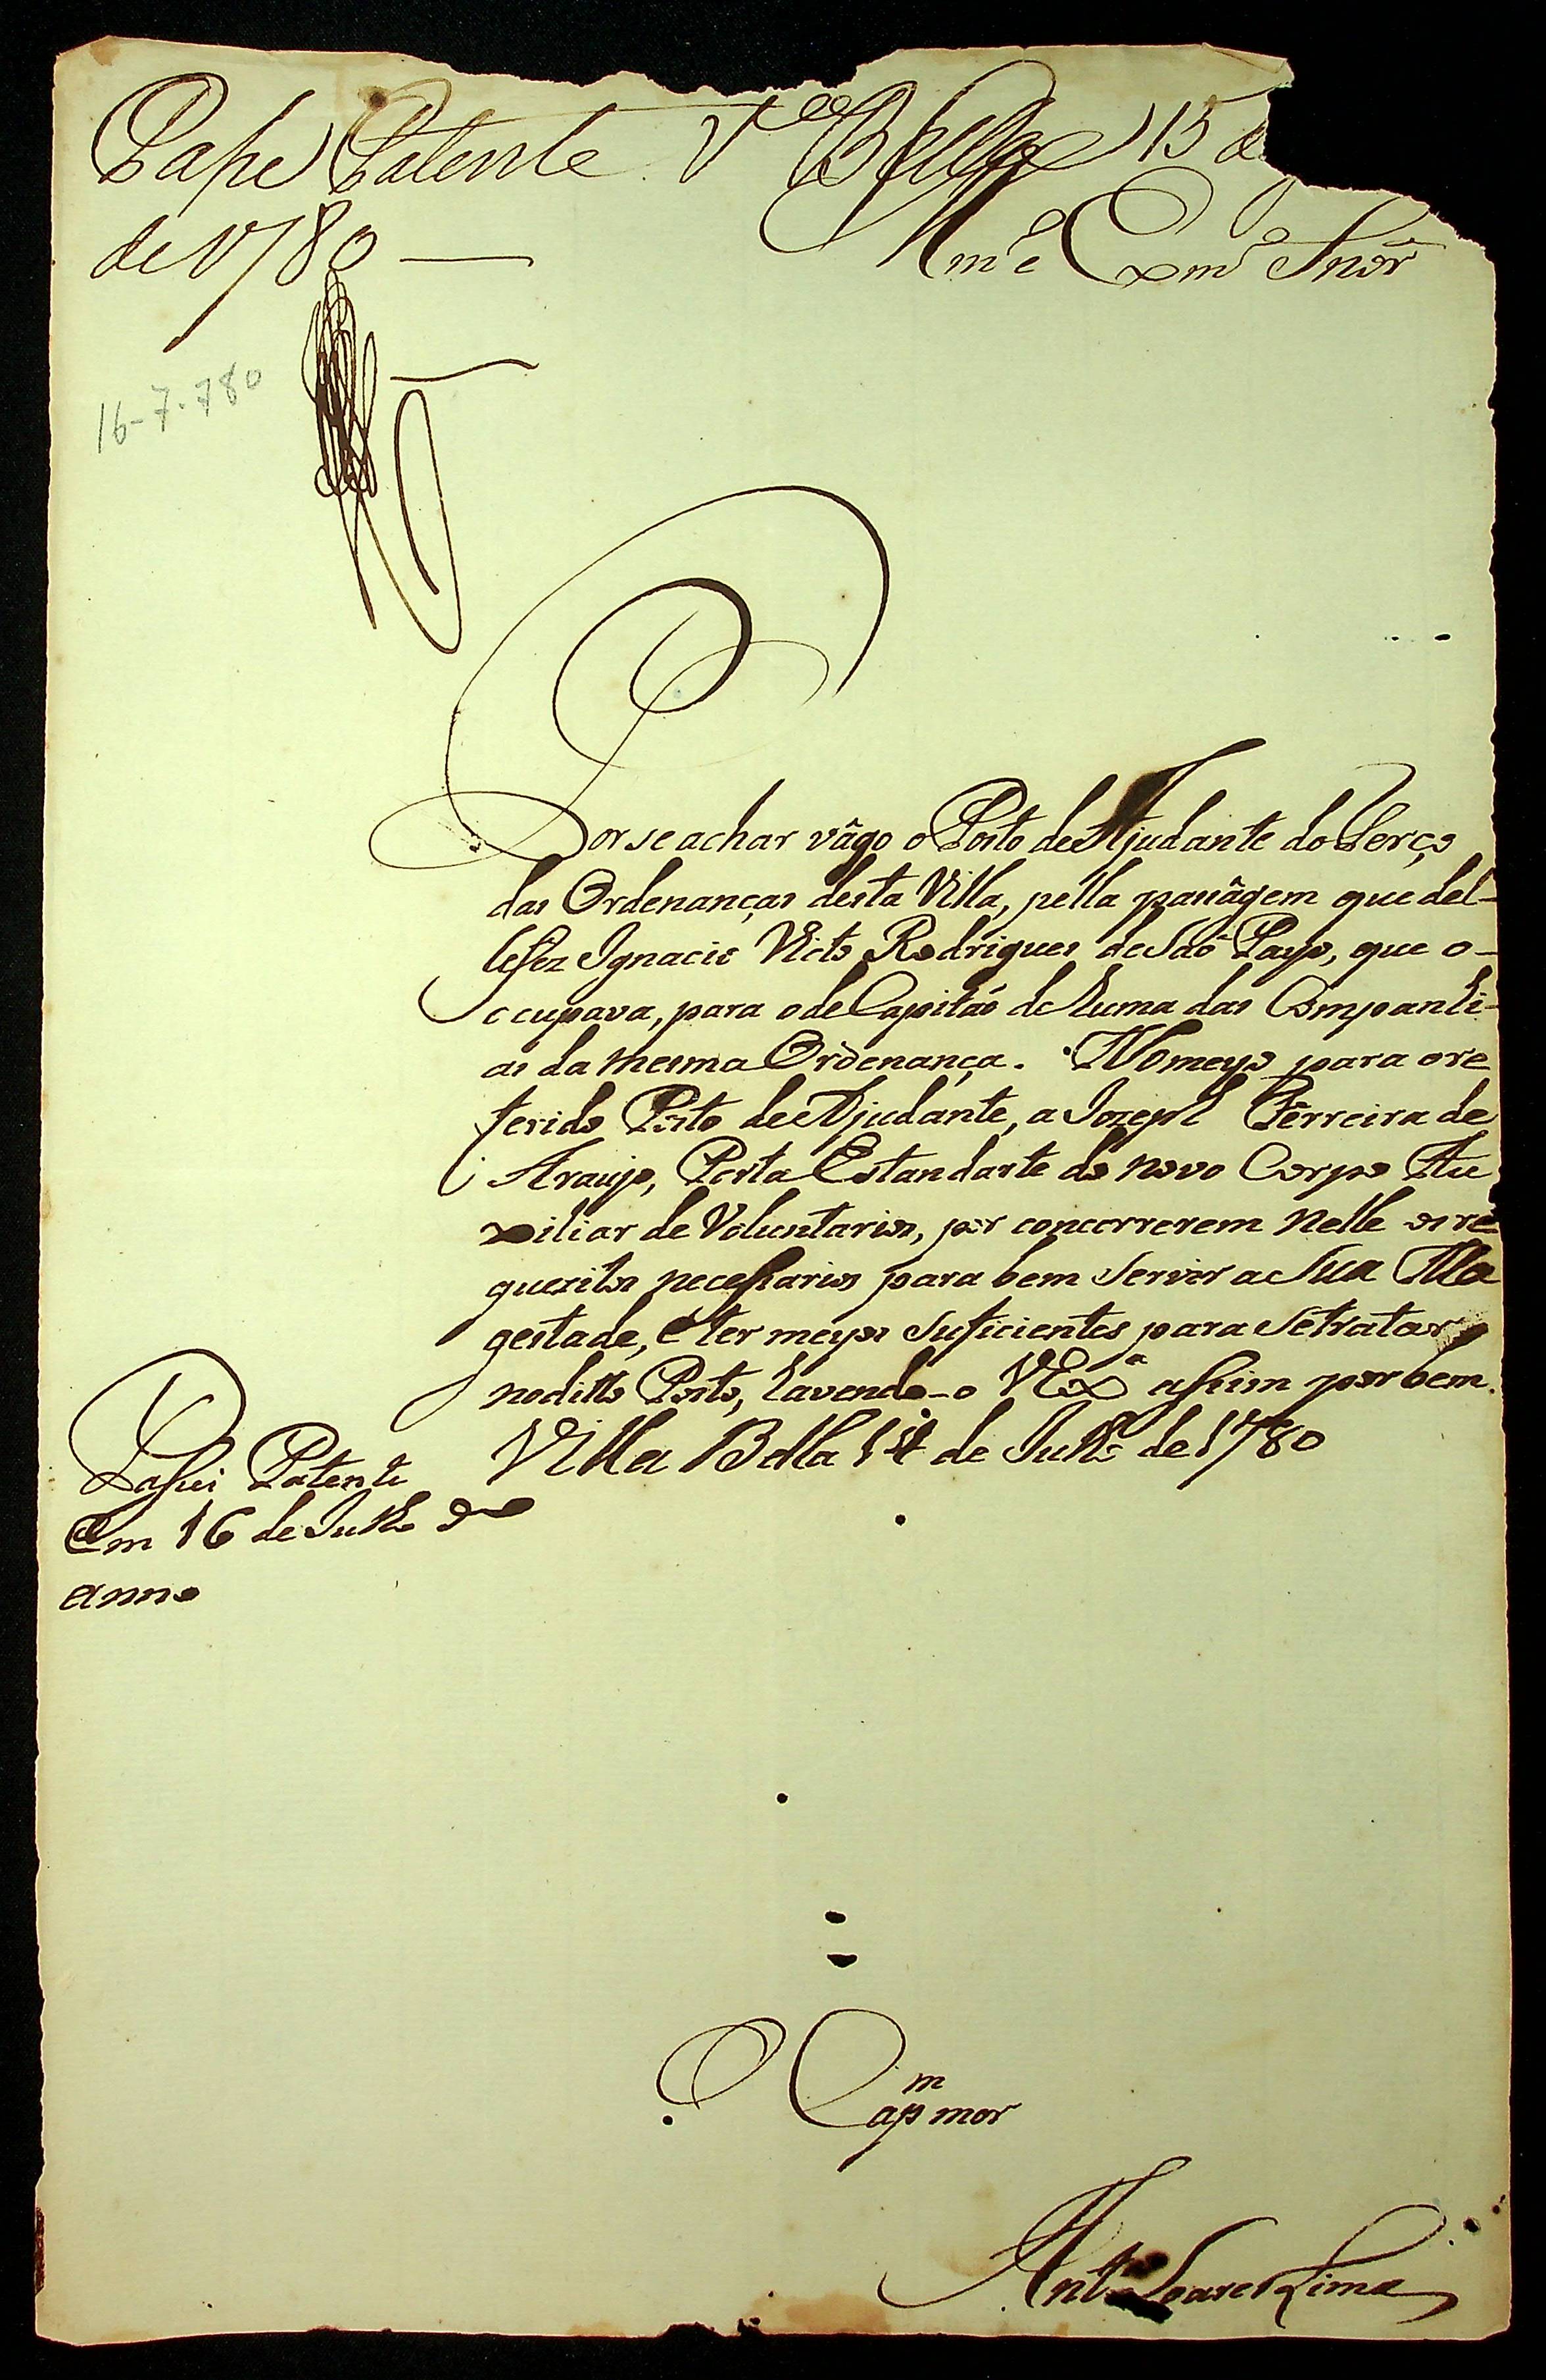 Passe Patente. Vª Bella 15 de
de 1780
Illmº e Exmº Snõr
16-7-780
Por se achar vâgo o Posto de Ajudante do Terço
das Ordenanças desta Villa, pella passâgem que del-
le fez Ignacio Victo Rodrigues de Saõ Payo, que o-
ccupava, para o de Capitaõ de huma das Companhi-
as da mesma Ordenança. Nomeyo para o re
ferido Posto de Ajudante, a Jozeph Ferreira de
Araujo, Porta Estandarte do novo Corpo Au
xiliar de Voluntarios, por concorrerem nelle os re
quezitos necessarios para bem servir a Sua Ma
gestade, e ter meyos suficientes para se tratar
no ditto Posto, havendo-o VExª assim por bem.
Villa Bella 14 de Julho de 1780
Passei Patente
em 16 de Julho do
anno
O Capm mor
Antº Soares Lima